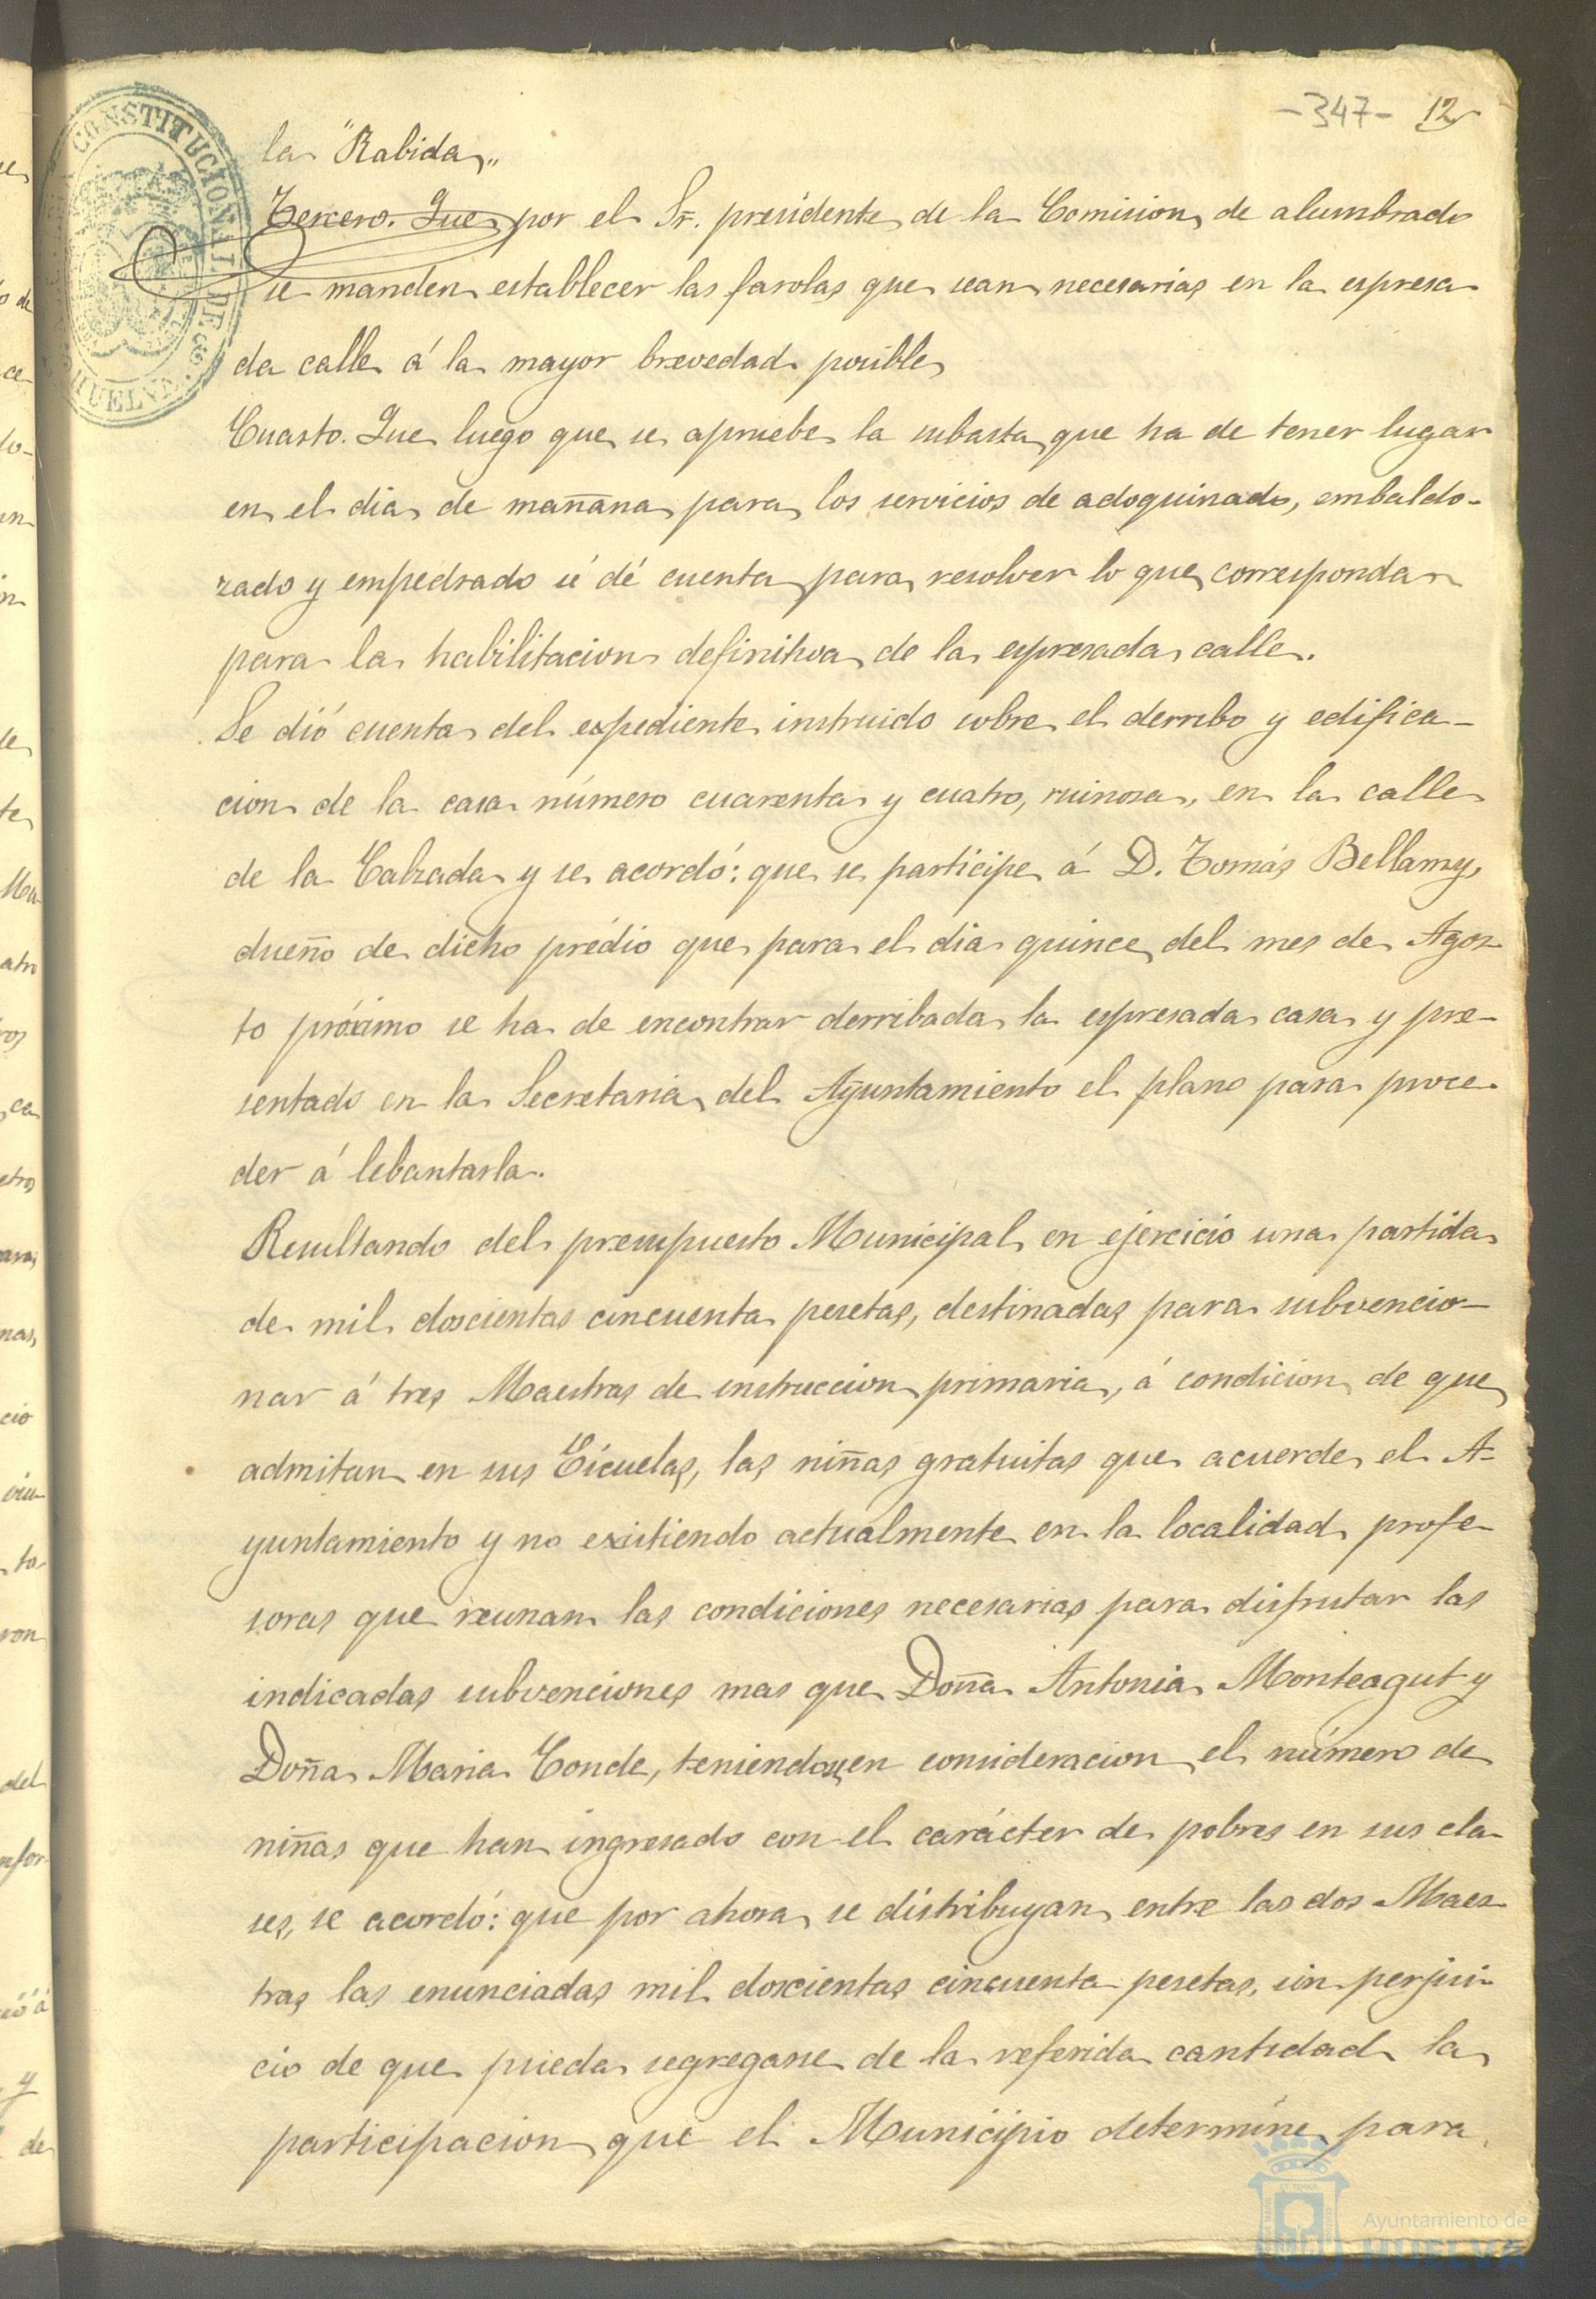 -347- 12
la "Rabida„
Tercero. Que por el Sr. presidente de la Comision de alumbrado
se manden establecer las farolas que sean necesarias en la espresa
da calle á la mayor brevedad posible
Cuarto. Que luego que se apruebe la subasta que ha de tener lugar
en el dia de mañana para los servicios de adoquinado, embaldo-
zado y empedrado sé dé cuenta para resolver lo que corresponda
para la habilitacion definitiva de la espresada calle.
Se dió cuenta del expediente instruido sobre el derribo y edifica-
cion de la casa número cuarenta y cuatro, ruinosa, en la calle
de la Calzada y se acordó: que se participe á D. Tomás Bellamy,
dueño de dicho prédio que para el dia quince del mes de Agos
to próximo se ha de encontrar derribada la espresada casa y pre-
sentado en la Secretaria del Ayuntamiento el plano para proce
der á lebantarla.
Resultando del presupuesto Municipal en ejercicio una partida
de mil doscientas cincuenta pesetas, destinadas para subvencio-
nar á tres Maestras de instruccion primaria, á condicion de que
admitan en sus Escuelas, las niñas gratuitas que acuerde el A-
yuntamiento y no existiendo actualmente en la localidad profe-
soras que reunan las condiciones necesarias para disfrutar las
indicadas subvenciones mas que Doña Antonia Monteagut y
Doña Maria Conde, teniendo en consideracion el número de
niñas que han ingresado con el carácter de pobres en sus cla
ses, se acordó: que por ahora se distribuyan entre las dos Maes
tras las enunciadas mil doscientas cincuenta pesetas, sin perjui-
cio de que pueda segregarse de la referida cantidad la
participacion que el Municipio determine para
CONSTITUCIONAL DE
HUELVA
Ayuntamiento de
HUELVA